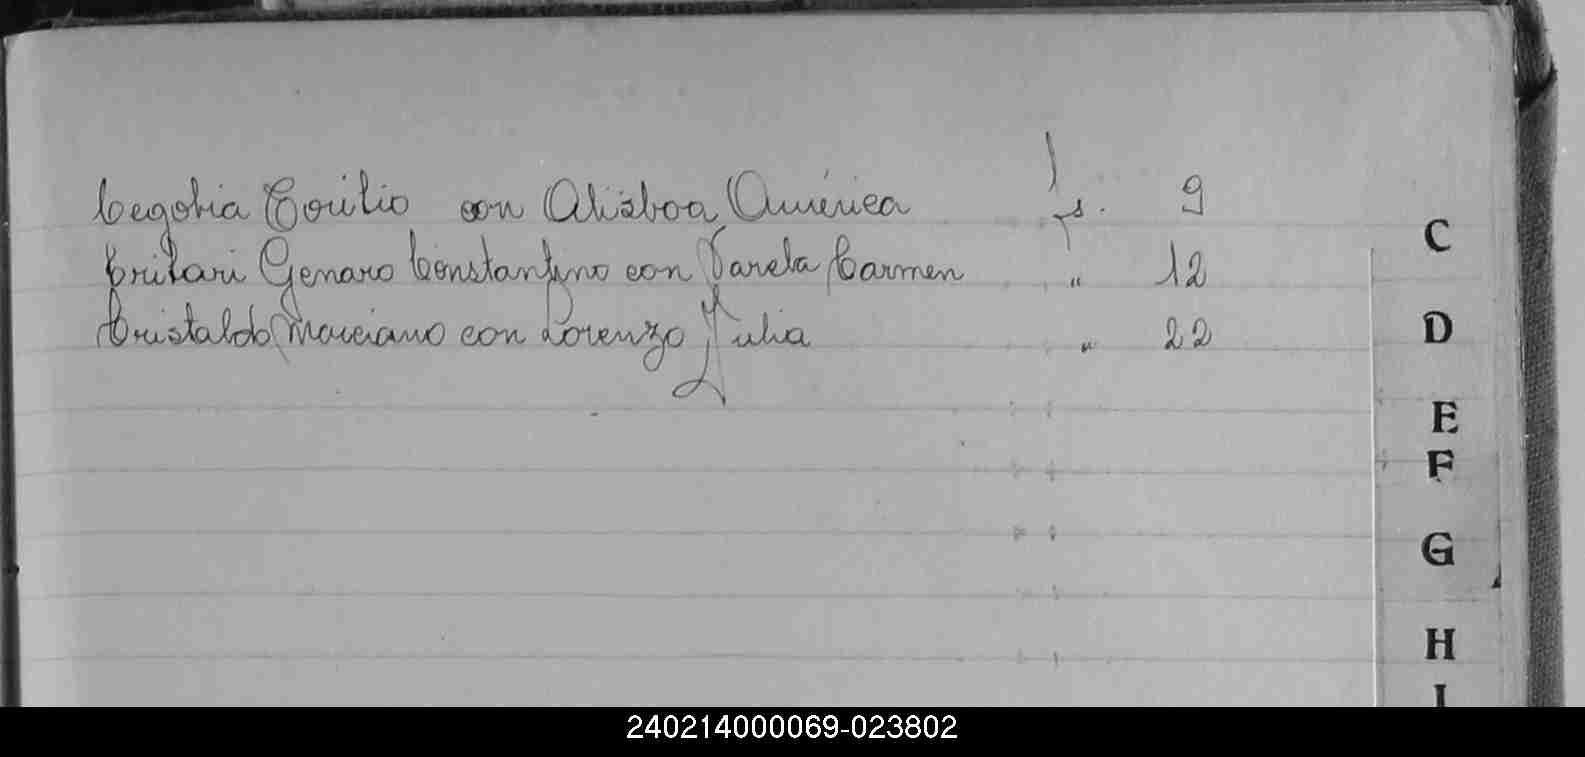 Cegobia Emilio con Alisboa América fs. 9
Critari Genaro Constantino con Varela Carmen " 12
Cristaldo Marciano con Lorenzo Julia " 22
C
D
E
F
G
H
I
240214000069-023802